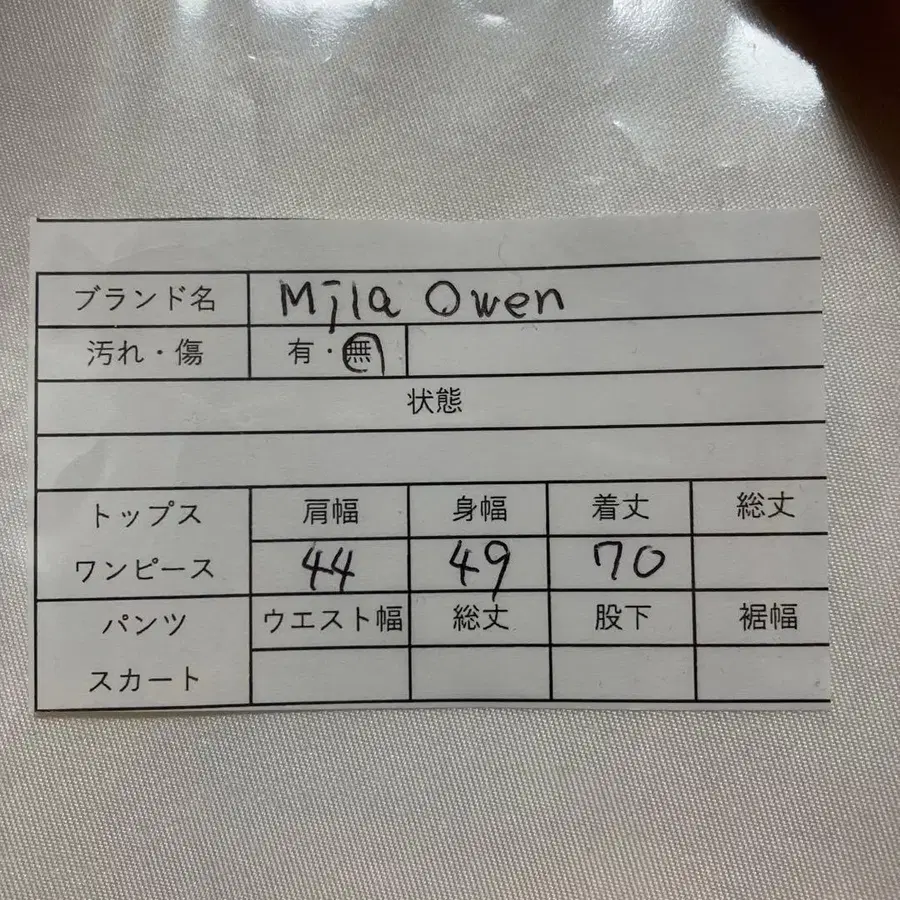 ブランド名 Mila Owen
汚れ・傷 有・無
状態
トップス 肩幅 身幅 着丈 総丈
ワンピース 44 49 70
パンツ ウエスト幅 総丈 股下 裾幅
スカート